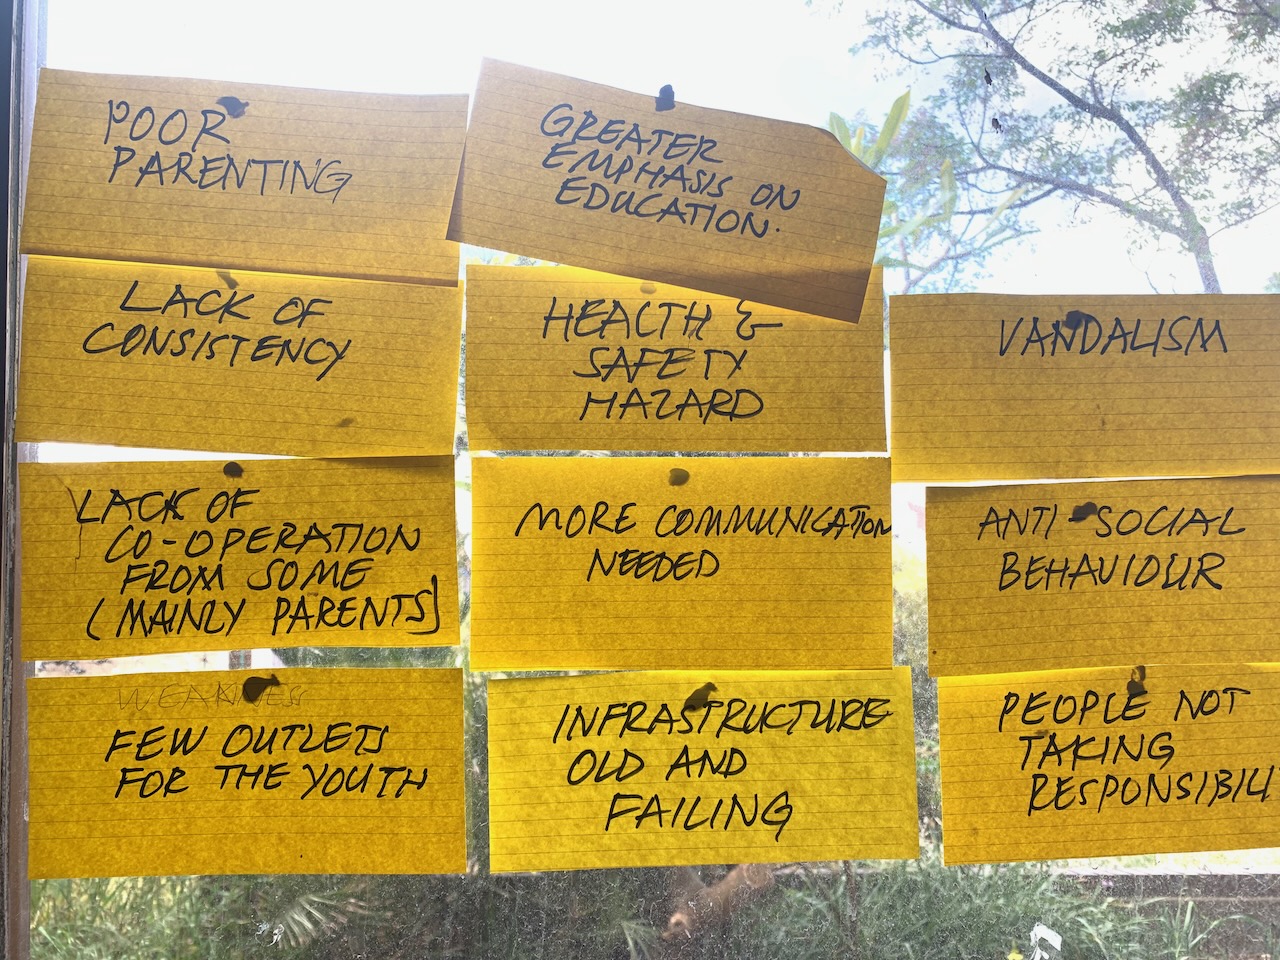 POOR
PARENTING
GREATER
EMPHASIS ON
EDUCATION.
LACK OF
CONSISTENCY
HEALTH &
SAFETY
HAZARD
VANDALISM
LACK OF
CO-OPERATION
FROM SOME
(MAINLY PARENTS)
MORE COMMUNICATION
NEEDED
ANTI-SOCIAL
BEHAVIOUR
WEAKNESS
FEW OUTLETS
FOR THE YOUTH
INFRASTRUCTURE
OLD AND
FAILING
PEOPLE NOT
TAKING
RESPONSIBILI